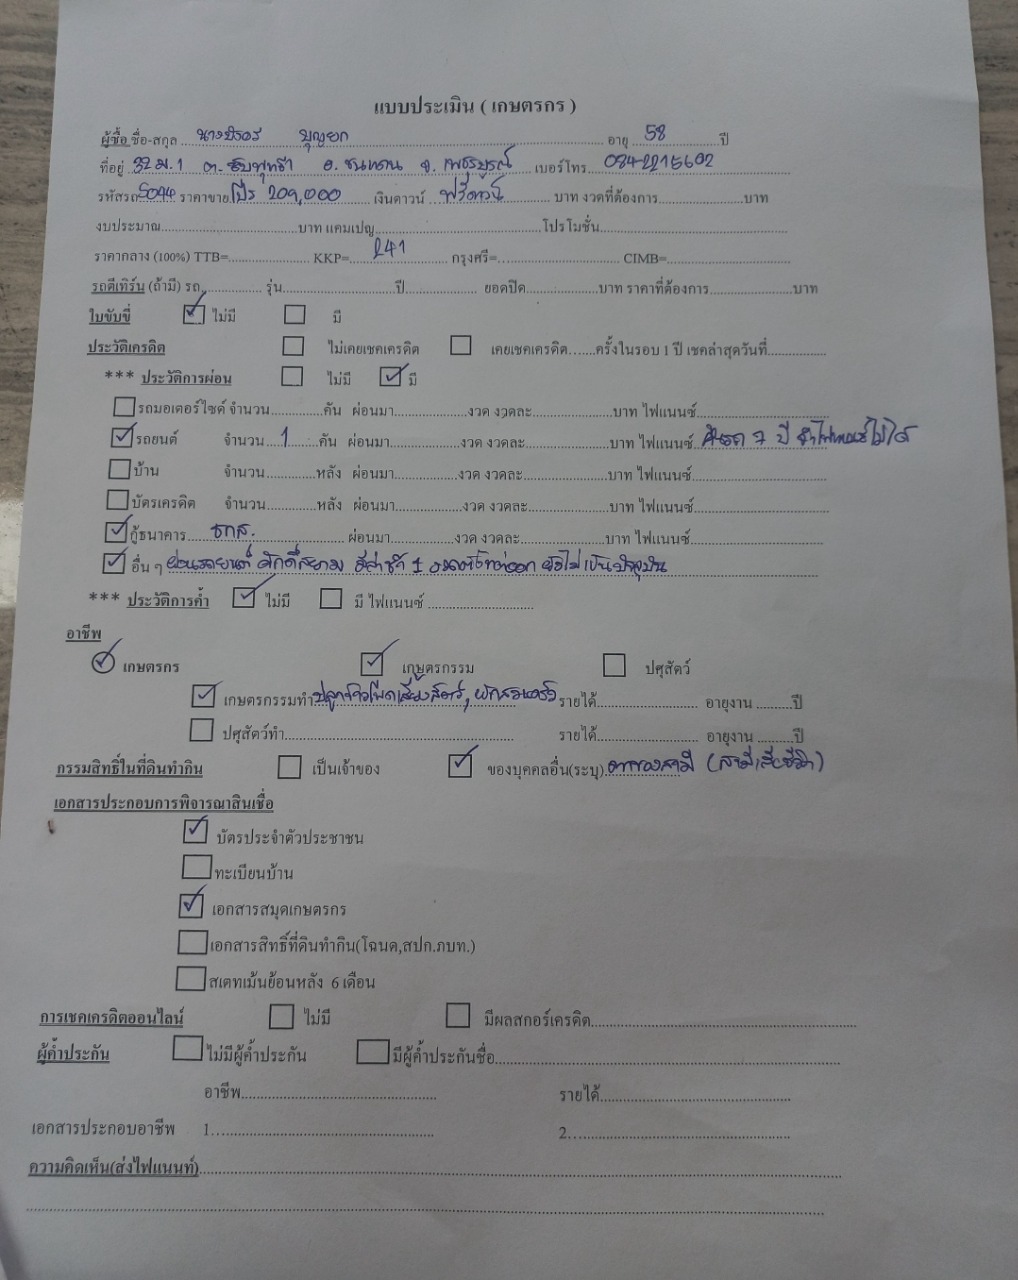 แบบประเมิน ( เกษตรกร )
ผู้ซื้อ ชื่อ-สกุล นาง บุญยก อายุ 58 ปี
ที่อยู่ 32 ม.1 ต. ซับพุทรา อ. ชนแดน จ. เพชรบูรณ์ เบอร์โทร. 0842215602
รหัสรถ 5094 ราคาขาย โปร 209,000 เงินดาวน์ ฟรีดาวน์ บาท งวดที่ต้องการ บาท
งบประมาณ บาท แคมเปญ โปรโมชั่น
ราคากลาง (100%) TTB= KKP= 241 กรุงศรี= CIMB=
รถตีเทิร์น (ถ้ามี) รถ รุ่น ปี ยอดปิด บาท ราคาที่ต้องการ บาท
ใบขับขี่ ไม่มี มี
ประวัติเครดิต ไม่เคยเชคเครดิต เคยเชคเครดิต ครั้งในรอบ 1 ปี เชคล่าสุดวันที่
*** ประวัติการผ่อน ไม่มี มี
รถมอเตอร์ไซค์ จำนวน คัน ผ่อนมา งวด งวดละ บาท ไฟแนนซ์
รถยนต์ จำนวน 1 คัน ผ่อนมา งวด งวดละ บาท ไฟแนนซ์ คืนรถ 7 ปี จำไฟแนนซ์ไม่ได้
บ้าน จำนวน หลัง ผ่อนมา งวด งวดละ บาท ไฟแนนซ์
บัตรเครดิต จำนวน หลัง ผ่อนมา งวด งวดละ บาท ไฟแนนซ์
กู้ธนาคาร ธกส. ผ่อนมา งวด งวดละ บาท ไฟแนนซ์
อื่น ๆ ผ่อนรถยนต์ ศักดิ์สยาม ล่าช้า 1 ไม่เป็นปัจจุบัน
*** ประวัติการค้ำ ไม่มี มี ไฟแนนซ์
อาชีพ
เกษตรกร เกษตรกรรม ปศุสัตว์
เกษตรกรรมทำ ปลูกข้าวโพดเลี้ยงสัตว์, ผักสวนครัว รายได้ อายุงาน ปี
ปศุสัตว์ทำ รายได้ อายุงาน ปี
กรรมสิทธิ์ในที่ดินทำกิน เป็นเจ้าของ ของบุคคลอื่น(ระบุ) อาของสามี (สามีเสียชีวิต)
เอกสารประกอบการพิจารณาสินเชื่อ
บัตรประจำตัวประชาชน
ทะเบียนบ้าน
เอกสารสมุดเกษตรกร
เอกสารสิทธิ์ที่ดินทำกิน(โฉนด,สปก.ภบท.)
สเตทเม้นย้อนหลัง 6 เดือน
การเชคเครดิตออนไลน์ ไม่มี มีผลสกอร์เครดิต
ผู้ค้ำประกัน ไม่มีผู้ค้ำประกัน มีผู้ค้ำประกันชื่อ
อาชีพ รายได้
เอกสารประกอบอาชีพ 1. 2.
ความคิดเห็น(ส่งไฟแนนท์)